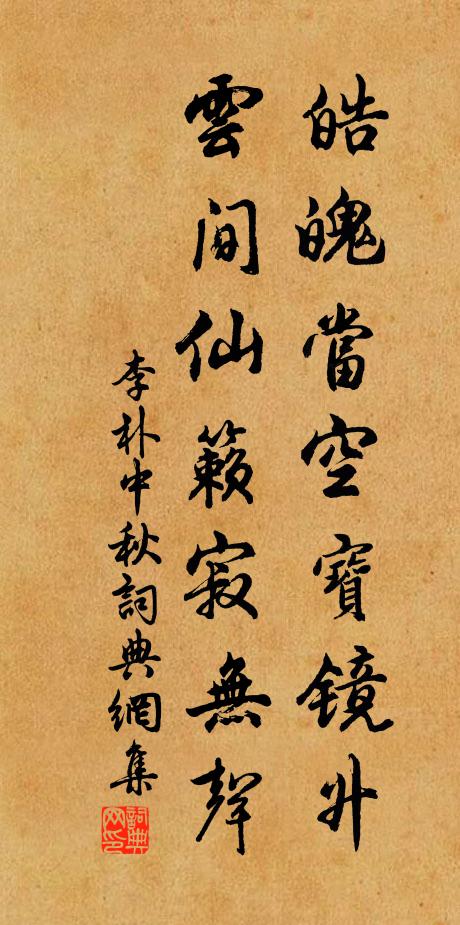 皓魄當空寶镜升
雲間仙籟寂無聲
李朴中秋詞典網集
詞典網印